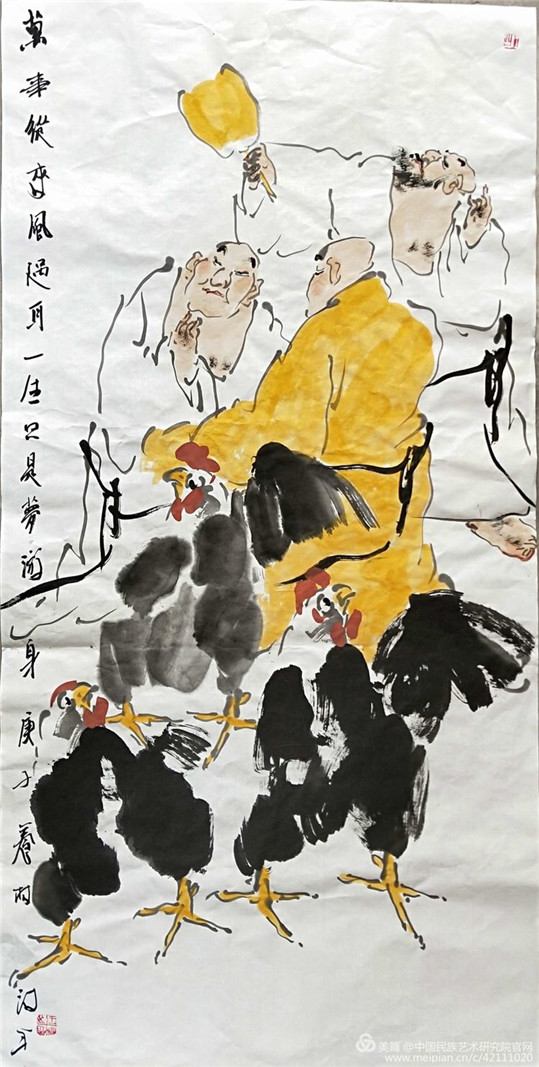 萬事從來風過耳一生只是夢游身庚子春雨
美篇 @中国民族艺术研究院官网
www.meipian.cn/c/42111020